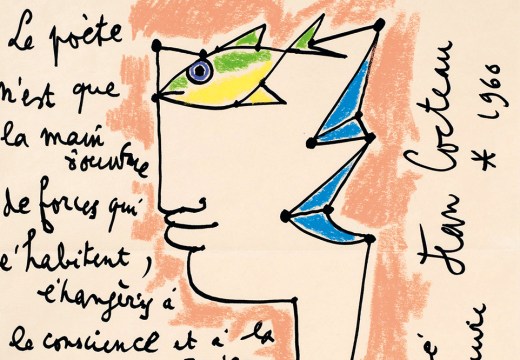 Le poète
n'est que
la main
ouverte
de forces qui
l'habitent,
étrangères à
la conscience et à la
Jean Cocteau
* 1960